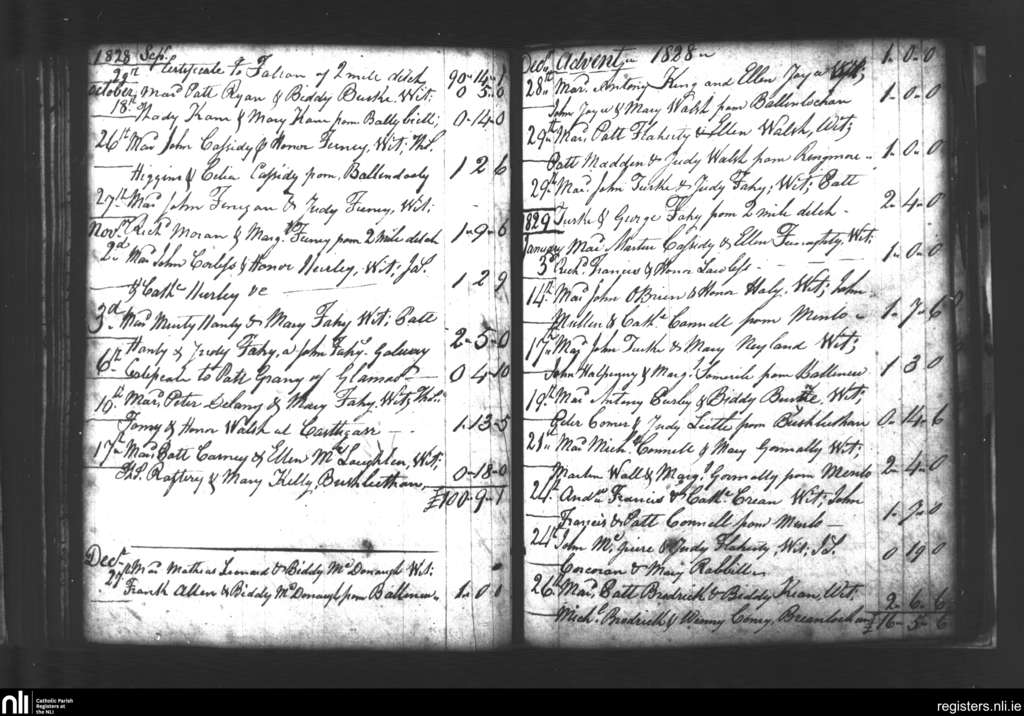 1828 Sept.
28th Certificate to Fallon of 2 mile ditch 90-14-1
October, Mard Patt Ryan & Biddy Burke, Wit; 0 5-0
18th Thady Kane & Mary Kane from Ballybriti; 0-14-0
26th Mard John Cassidy & Honor Feeney, Wit; Ths.
Higgins & Celia Cassidy from, Ballindooly 1 2 6
27th Mard John Finegan & Judy Feeney, Wit;
Novr. Richd Moran & Margt Feeney from 2 mile ditch 1-9-6
2d Mard John Corless & Honor Hurley, Wit; Js.
& Cathe Hurley 1 2 9
3d Mard Murty Hanly & Mary Fahy Wit; Patt
Hanly & Judy Fahy, John Fahy. Galway 2-5-0
6th Certificate to Patt Grany of 0 4-10
10th Mard Peter Delany & Mary Fahy. Wit; Ths.
& Honor Walsh at Castlegar 1-13-5
17th Mard Patt Carney & Ellen McLaughlen, Wit;
Ths. Raftery & Mary Kelly, Bushluthan, 0-18-0
£100-9-1
Decr.
27th Mard Mathias Leonard & Biddy McDonough Wit;
Frank Allen & Biddy McDonough from Ballinew. 1-0 1
Decr. Advent 1828 1-0-0
28th Mar. Antony King and Ellen Joyce Wit,
John Joyce & Mary Walsh from Ballinlochan 1-0-0
29th Mard Patt Flaherty & Ellen Walsh, Wit;
Patt Madden & Judy Walsh from Rengmore 1-0-0
29th Mard John Turke & Judy Fahy; Wit; Patt
1829 Turke & George Fahy from 2 mile ditch 2-4-0
January Mard Martin Cassidy & Ellen Wit;
3d Richd. Francis & Honor Lawless 1-0-0
14th Mard John OBrien & Honor Haly. Wit; John
Mullen & Cathe. Connell from Menlo 1-7-6
17th Mard John Turke & Mary Neyland Wit;
John Halpegny & Margt. from Ballinew 1 3 0
19th Mard Antony Curley & Biddy Burke, Wit,
Peter Comer & Judy from Bushluthan 0-14-6
21st Mard Michl Connell & Mary Gonnally Wit;
Martin Wall & Margt. Gonnally from Menlo 2-4-0
24th Andw. Francis & Cathe Crean Wit; John
Francis & Patt Connell from Menlo 1-7-0
24th John McGuire & Judy Flaherty, Wit; Js.
Corcoran & Mary Rabbitte 0 19 0
26th Mard Patt Brodrick & Biddy Kean, Wit;
Michl. Brodrick & Winny Comy, Breanlochan 2-6-6
£16-5-6
nli Catholic Parish
Registers at
the NLI
registers.nli.ie